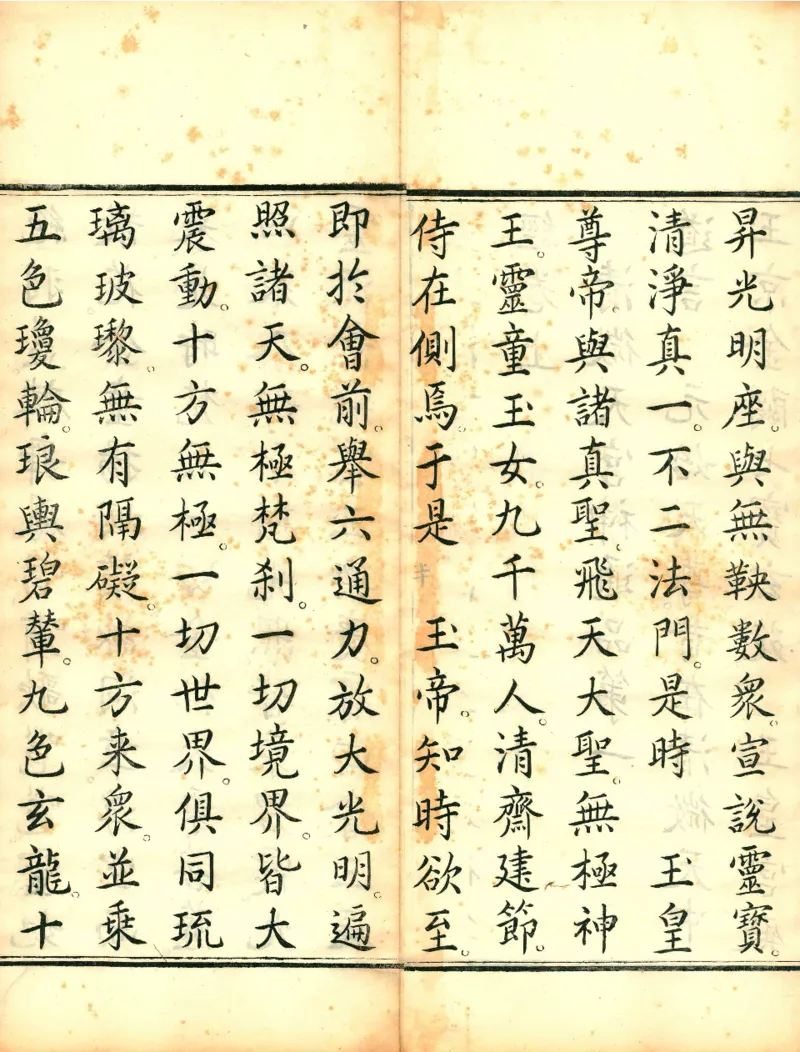 昇光明座。與無鞅數衆。宣説靈寶。
清淨真一。不二法門。是時　玉皇
尊帝。與諸真聖。飛天大聖。無極神
王。靈童玉女。九千萬人。清齋建節。
侍在側焉。于是　玉帝。知時欲至。
即於會前。舉六通力。放大光明。遍
照諸天。無極梵刹。一切境界。皆大
震動。十方無極。一切世界。俱同琉
璃玻瓈。無有隔礙。十方来衆。並乗
五色瓊輪。琅輿碧輦。九色玄龍。十